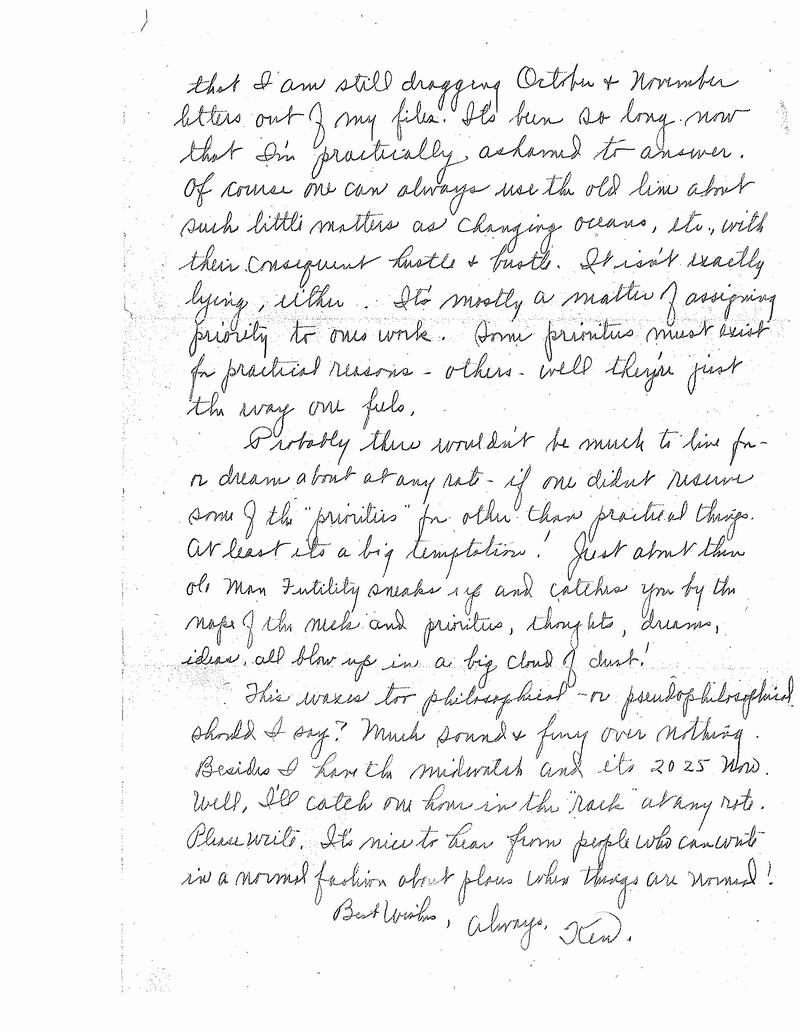 that I am still dragging October & November
letters out of my files. It's been so long now
that I'm practically ashamed to answer.
Of course one can always use the old line about
such little matters as changing oceans, etc., with
their consequent hustle & bustle. It isn't exactly
lying, either. It's mostly a matter of assigning
priority to ones work. Some priorities must exist
for practical reasons - others - well they're just
the way one feels.
Probably there wouldn't be much to live for -
or dream about at any rate - if one didn't reserve
some of the "priorities" for other than practical things.
At least its a big temptation! Just about then
ole Man Futility sneaks up and catches you by the
nape of the neck and priorities, thoughts, dreams,
ideas, all blow up in a big cloud of dust!
This waxes too philosophical - or pseudophilosophical
should I say? Much sound & fury over nothing.
Besides I have the midwatch and its 2025 Now.
Well, I'll catch one hour in the "rack" at any rate.
Please write. It's nice to hear from people who can write
in a normal fashion about plans when things are normal!
Best Wishes, always,
Ken.